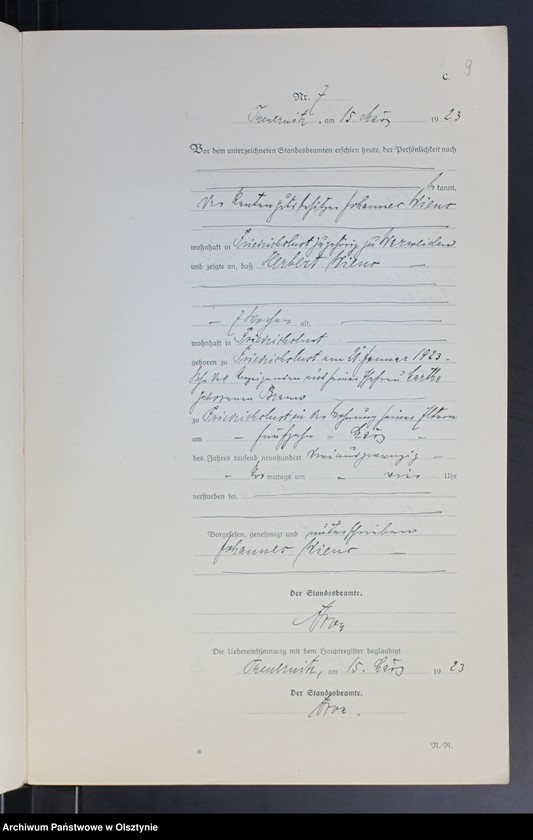 C. 9
Nr. 7
am 15. März 1923
Vor dem unterzeichneten Standesbeamten erschien heute, der Persönlichkeit nach
be kannt,
der Rentengutsbesitzer Johannes Wiens
wohnhaft in Friedrichslust zugehörig zu
und zeigte an, daß Herbert Wiens
7 Wochen alt,
wohnhaft in Friedrichslust
geboren zu Friedrichslust am Januar 1923
Sohn des Anzeigenden und seiner Ehefrau
geborenen
zu Friedrichslust in der Wohnung seiner Eltern
am fünfzehn März
des Jahres tausend neunhundert dreiundzwanzig
Vor mittags um vier Uhr
verstorben sei.
Vorgelesen, genehmigt und unterschrieben
Johannes Wiens
Der Standesbeamte.
Die Uebereinstimmung mit dem Hauptregister beglaubigt
am 15. März 1923
Der Standesbeamte.
N./N.
Archiwum Państwowe w Olsztynie